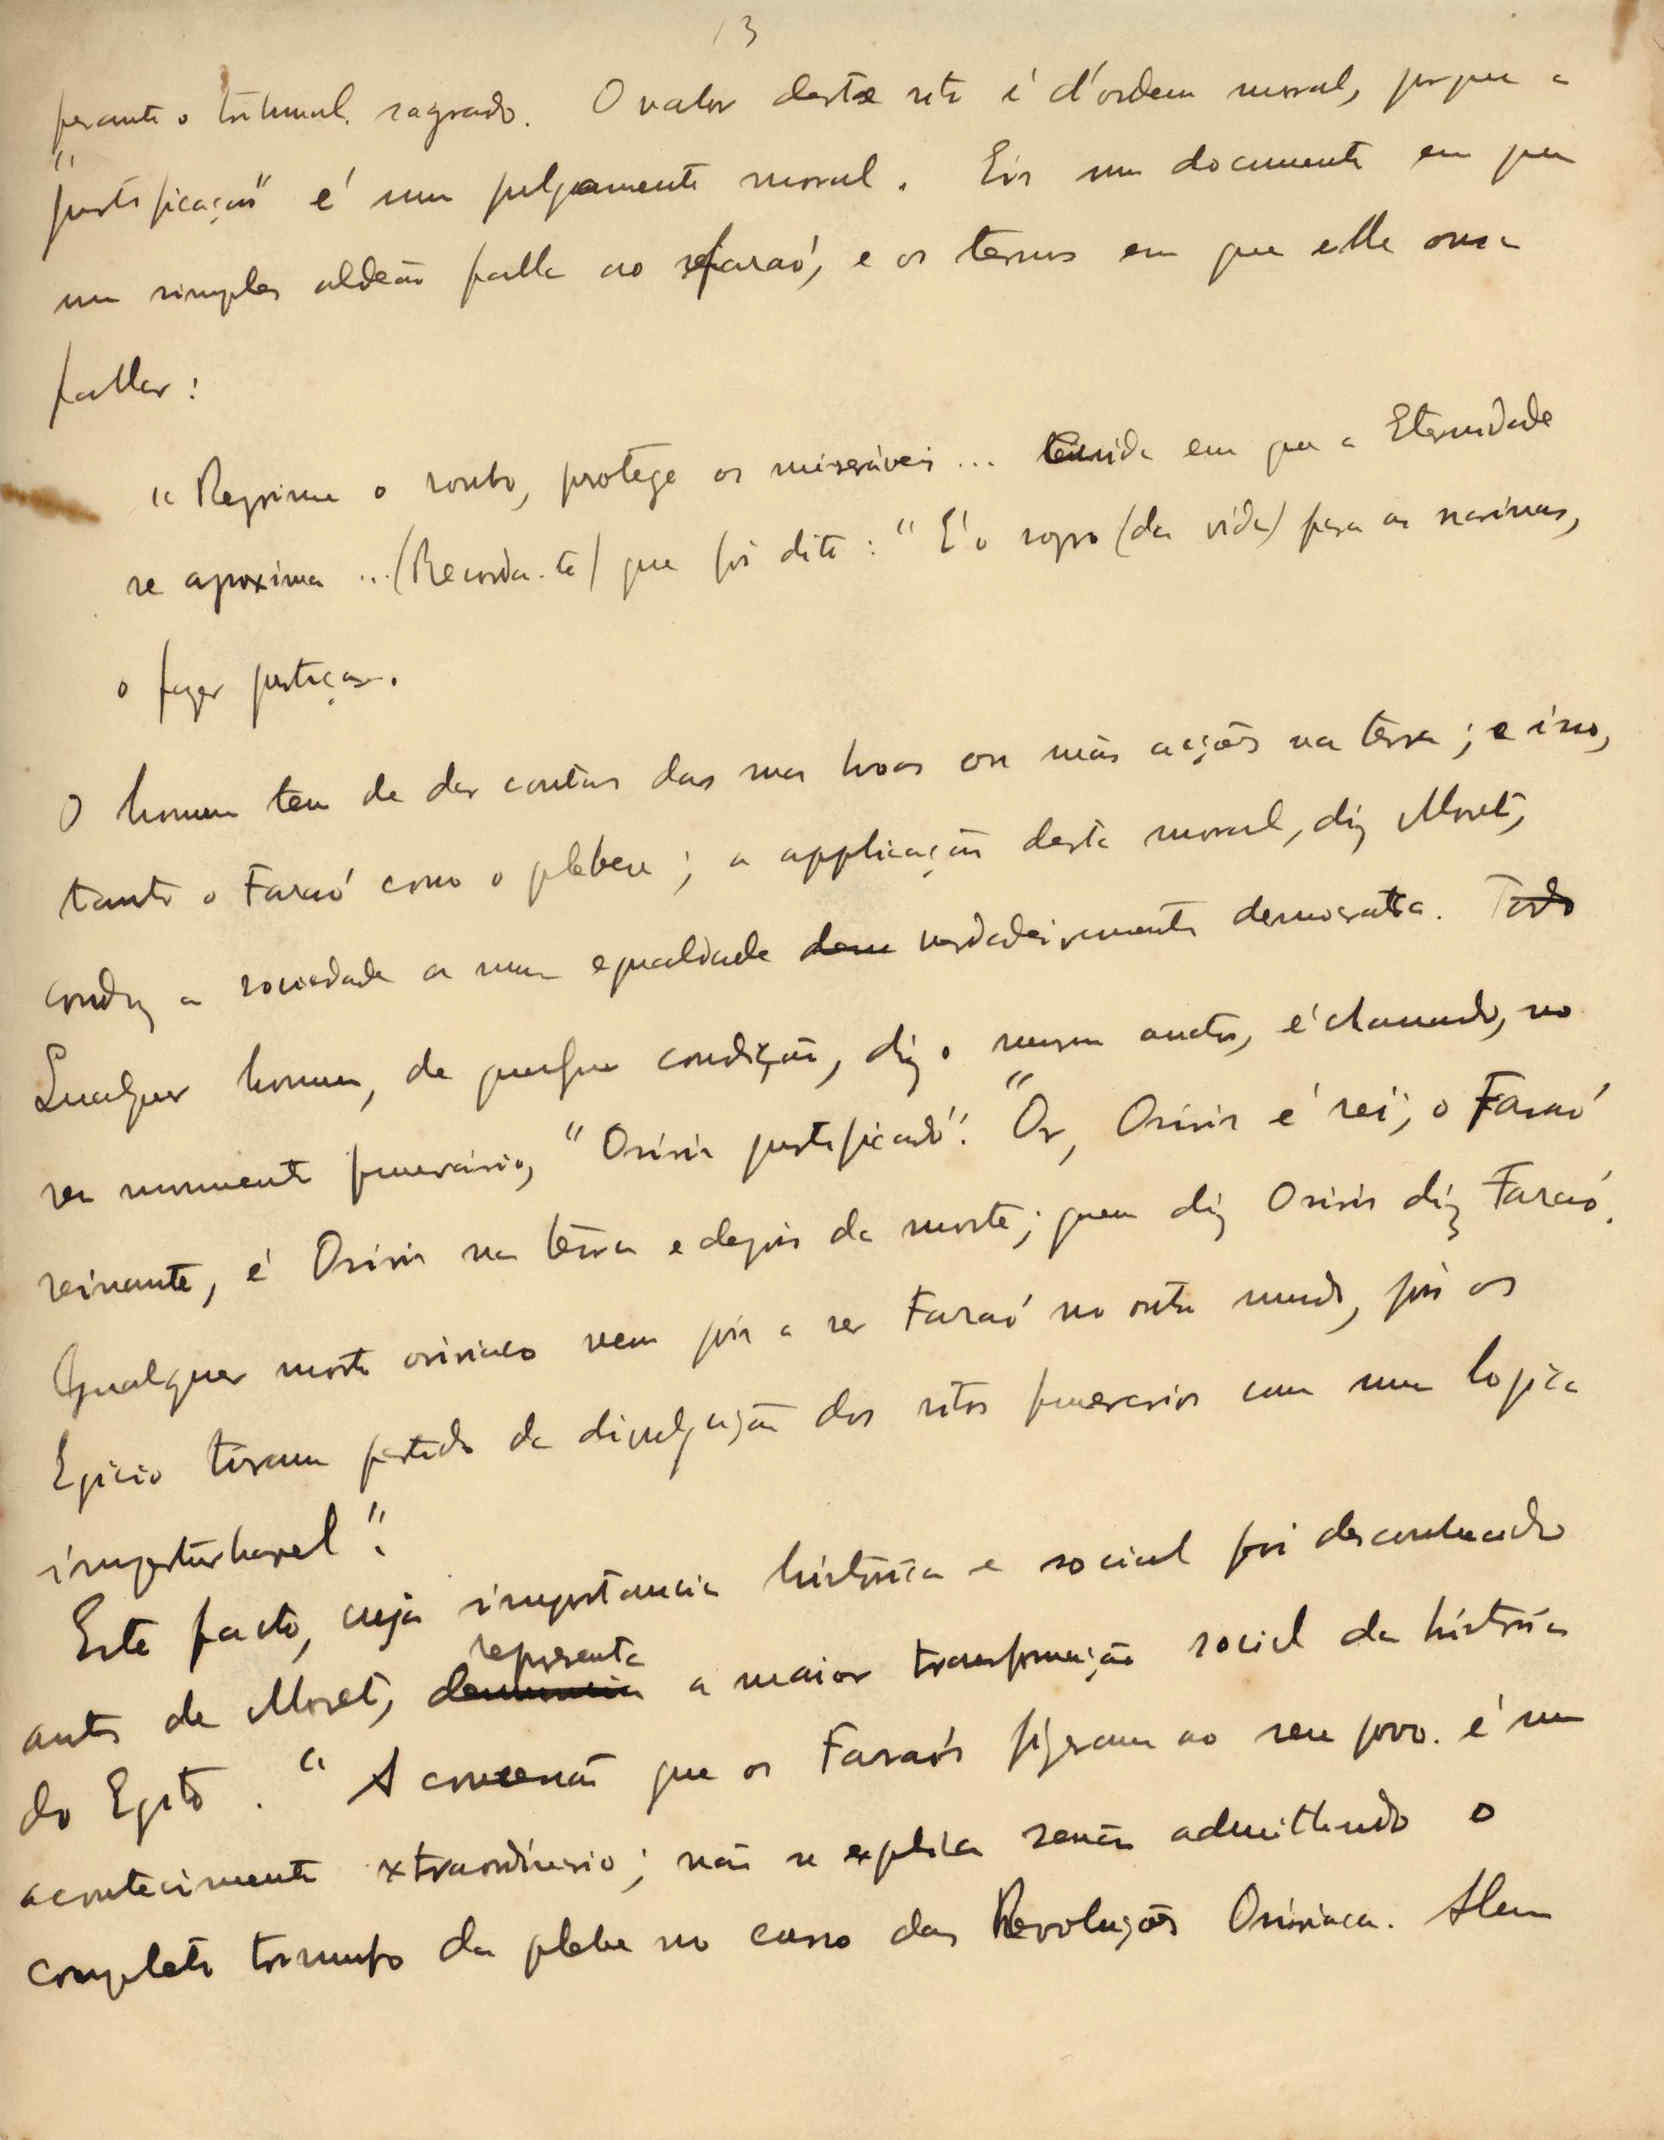 13
perante o tribunal sagrado. O valor deste rito é d'ordem moral, porque a
"justificação" é um julgamento moral. Eis um documento em que
um simples aldeão falla ao faraó, e os termos em que elle ousa
fallar:
"Reprime o roubo, protege os miseráveis... cuida em que a Eternidade
se aproxima... (Recorda-te) que foi dito: "É o sopro (da vida) para as narinas,
o fazer justiça".
O homem tem de dar contas das suas boas ou más acções na terra; e isso,
tanto o Faraó como o plebeu; a applicação desta moral, diz Moret,
conduz a sociedade a uma egualdade dem verdadeiramente democratica. Todo
Qualquer homem, de qualquer condição, diz o mesmo auctor, é chamado, no
seu monumento funerário, "Osiris justificado". "Or, Osiris é rei; o Faraó
reinante, é Osiris na terra e depois da morte; quem diz Osiris diz Faraó.
Qualquer morto osiriaco vem pois a ser Faraó no outro mundo, pois os
Egicio tiram partido da divulgação dos ritos funerarios com uma logica
imperturbavel".
Este facto, cuja importancia histórica e social foi desconhecido
antes de Moret, representa a maior transformação social da história
do Egito. "A concessão que os Faraós fizeram ao seu povo é um
acontecimento extraordinario; não se explica senão admittindo o
completo triunfo da plebe no curso das Revoluções Osiriaca. Alem